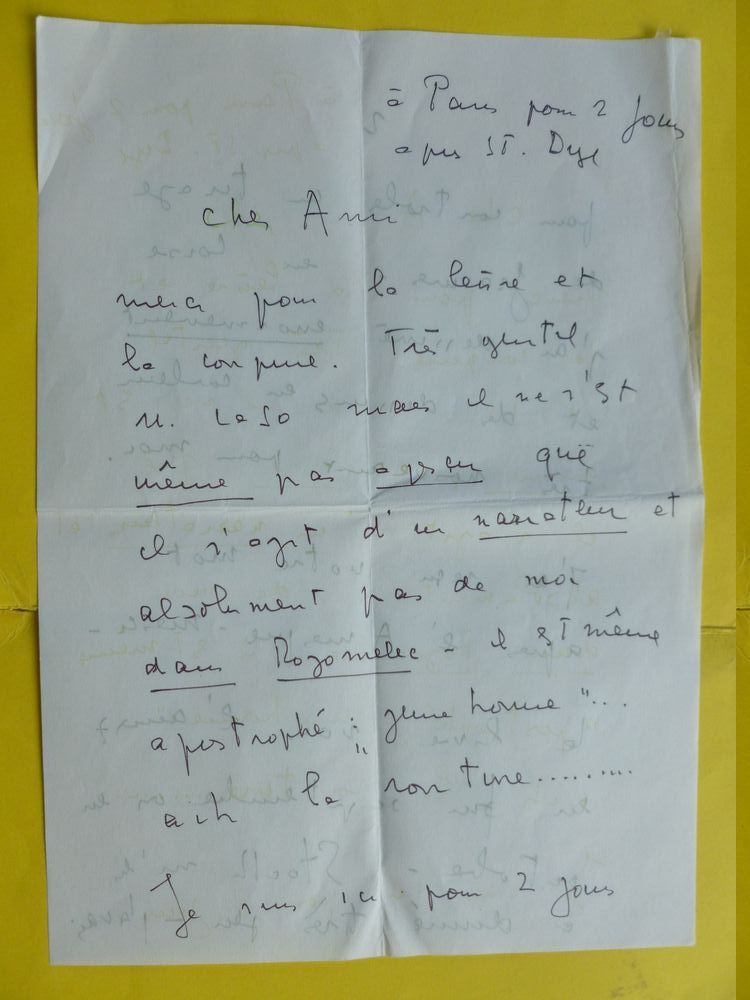 à Paris pour 2 Jours
après ST. Dyé
cher Ami
merci pour la lettre et
la coupure. Très gentil
M. LaSo mais il ne s'est
même pas aperçu que
il s'agit d'un narrateur et
absolument pas de moi
dans Rogomelec - il EST même
apostrophé : "jeune homme"...
ach la routine.........
Je suis ici pour 2 Jours